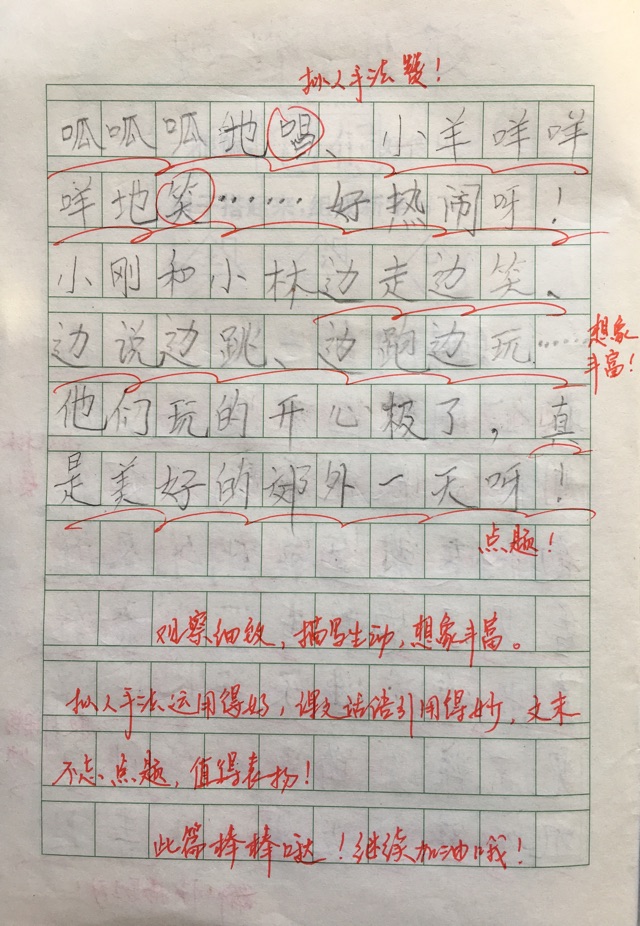 拟人手法赞！
呱呱呱地唱、小羊咩咩
咩地笑……好热闹呀！
小刚和小林边走边笑、
边说边跳、边跑边玩……
想象
丰富！
他们玩的开心极了，真
是美好的郊外一天呀！
点题！
观察细致，描写生动，想象丰富。
拟人手法运用得好，课文话语引用得妙，文末
不忘点题，值得表扬！
此篇棒棒哒！继续加油哦！